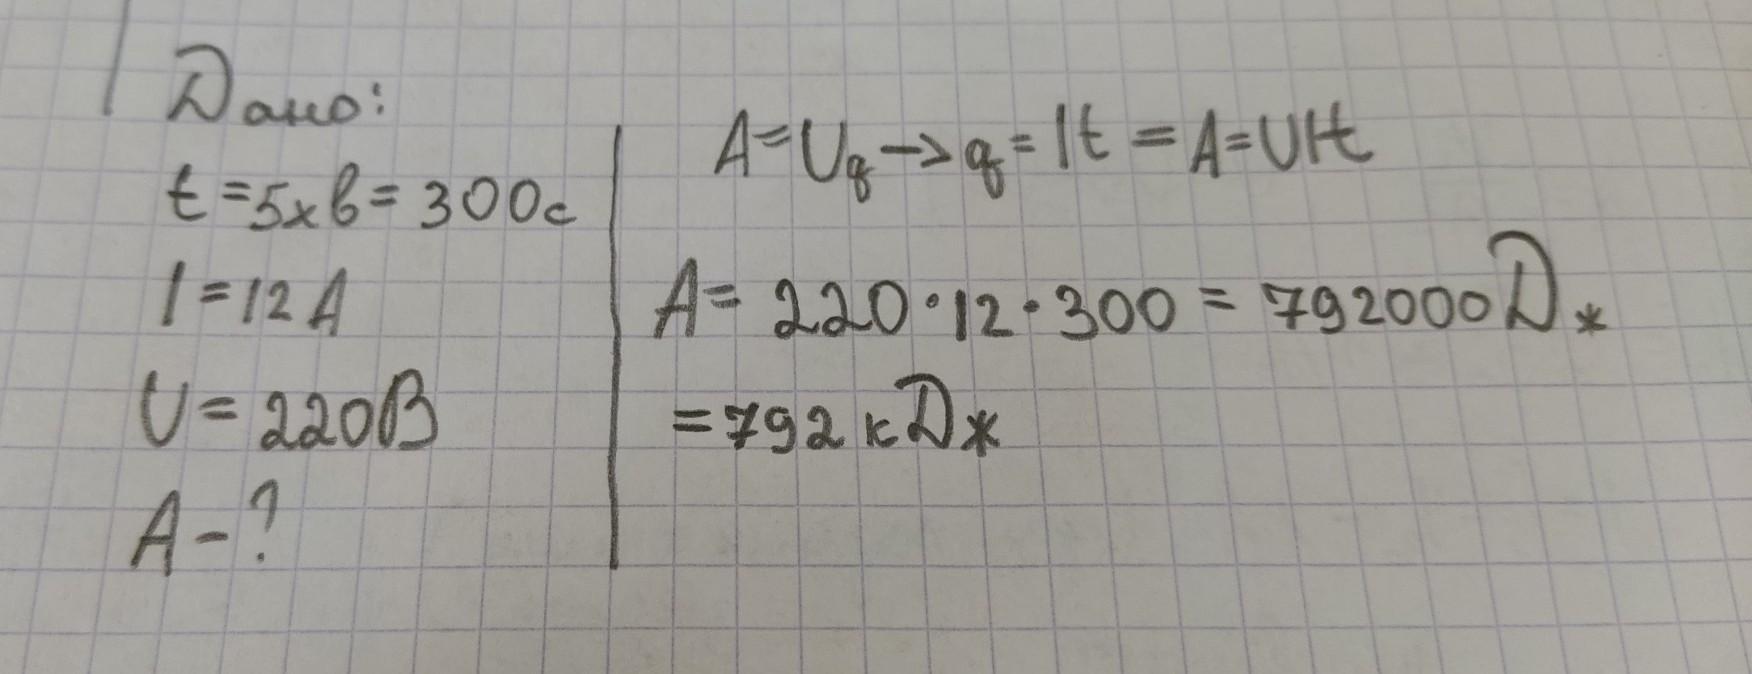 Дано:
t = 5хв = 300с
I = 12 А
U = 220В
А - ?
A = Uq → q = It = A = UIt
A = 220 · 12 · 300 = 792000 Дж
= 792 кДж